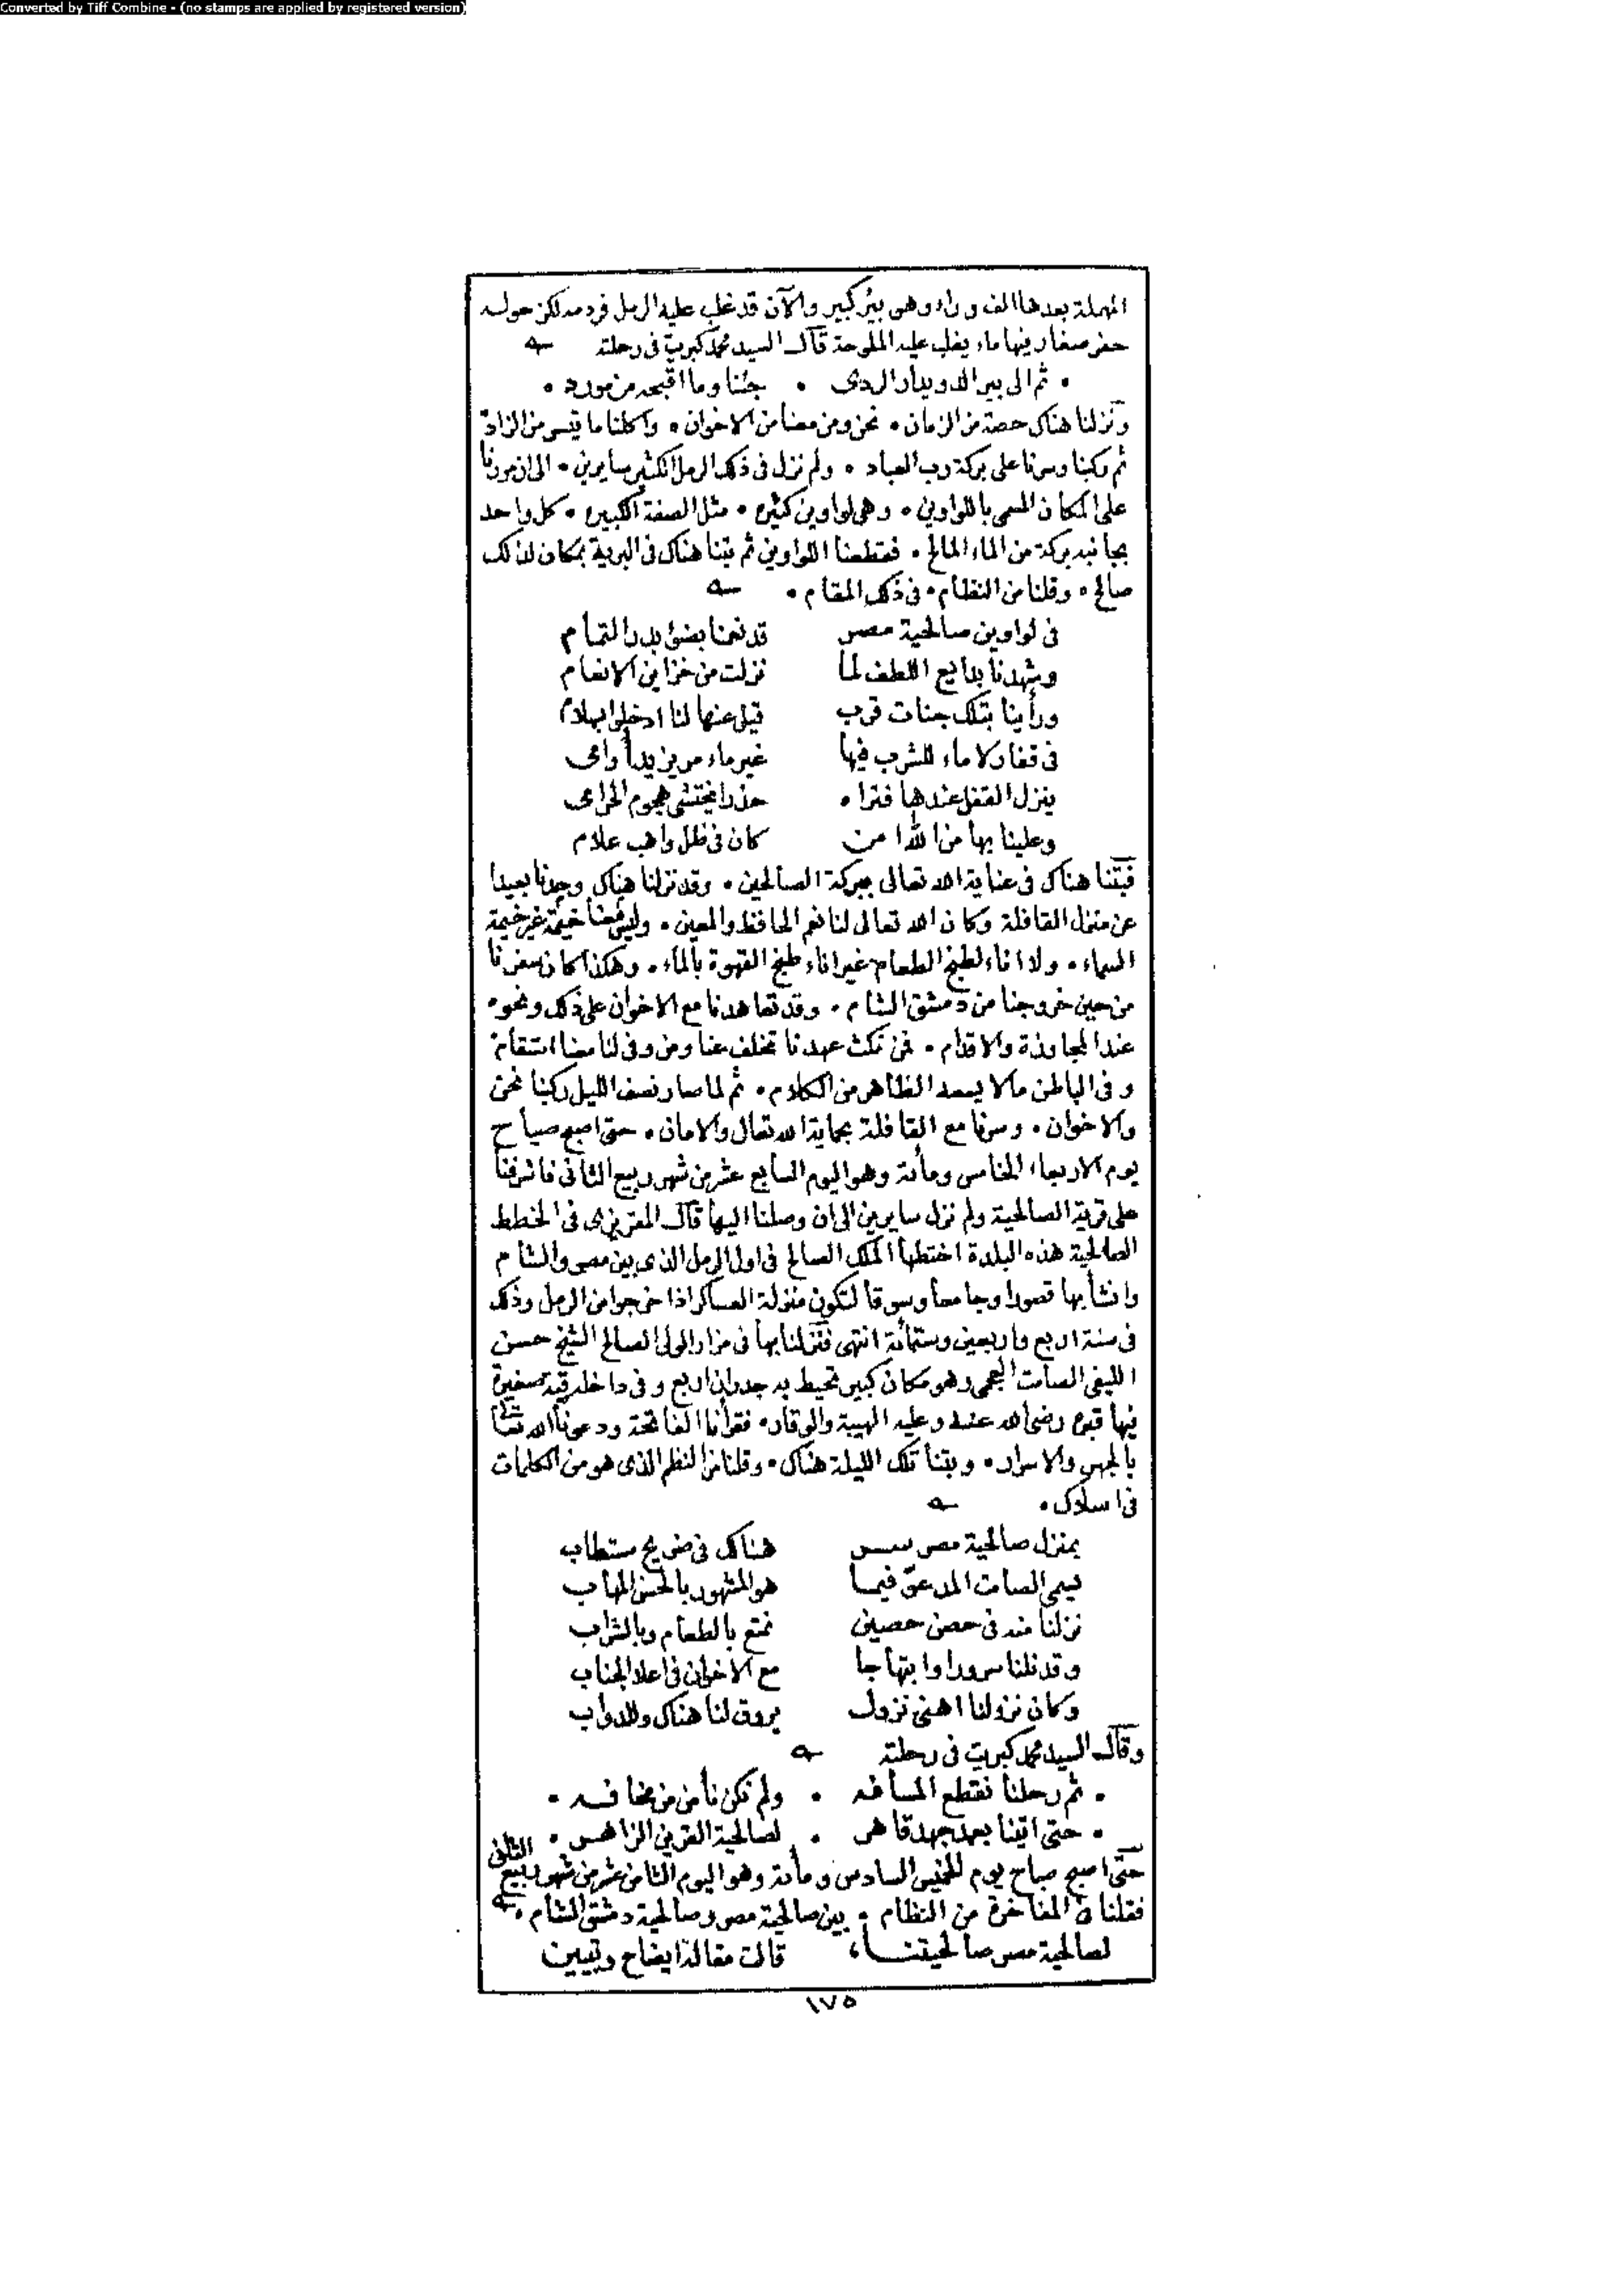 Converted by Tiff Combine - (no stamps are applied by registered version)
المهملة بعدها الف وراء وهو بئر كبير والآن قد غلب عليه الرمل فردمه لكن حوله
حفر صغار فيها ماء يغلب عليه الملوحة قال السيد محمد كبريت في رحلته
• ثم الى بير الدويدار الردى • جئنا وما اقبحه من مورد •
ونزلنا هناك حصة من الزمان • نحن ومن معنا من الاخوان • واكلنا ما تيسر من الزاد
ثم ركبنا وسرنا على بركة رب العباد • ولم نزل في ذلك الرمل الكثير سايرين • الى ان مررنا
على المكان المسمى باللواوين • وهي لواوين كثيره • مثل الصفة الكبيره • كل واحد
بجانبه بركة من الماء المالح • فقطعنا اللواوين ثم بتنا هناك في البرية بمكان لذلك
صالح • وقلنا من النظام • في ذلك المقام •
في لواوين صالحية مصر قد نعمنا بضوء بدر التمام
وشهدنا بدايع اللطف لما نزلت من خزاين الانعام
ورأينا بتلك جنات قرب قيل عنها لنا ادخلوا بسلام
في قفار لا ماء للشرب فيها غير ماء مر يزيد أوامى
ينزل القفل عندها فتراه حذرا يختشى هجوم الحرامى
وعلينا بها من الله امن كان في ظل واهب علام
فبتنا هناك في عناية الله تعالى ببركة الصالحين • وقد نزلنا هناك وحدنا بعيدا
عن منزل القافلة وكان الله تعالى لنا نعم الحافظ والمعين • وليس معنا خيمة غير خيمة
السماء • ولا اناء لطبخ الطعام غير اناء طبخ القهوة بالماء • وهكذا كان سفرنا
من حين خروجنا من دمشق الشام • وقد تعاهدنا مع الاخوان على ذلك ونحوه
عند المجاوزة والاقدام • فمن نكث عهدنا تخلف عنا ومن وفى لنا معنا استقام
وفي الباطن مالا يسعه الظاهر من الكلام • ثم لما صار نصف الليل ركبنا نحن
والاخوان • وسرنا مع القافلة بحماية الله تعالى والامان • حتى اصبح صباح
يوم الاربعاء الخامس ومأية وهو اليوم السابع عشر من شهر ربيع الثاني فاشرفنا
على قرية الصالحية ولم نزل سايرين الى ان وصلنا اليها قال المقريزى في الخطط
الصالحية هذه البلدة اختطها الملك الصالح في اول الرمل الذى بين مصر والشام
وانشأ بها قصورا وجامعا وسوقا لتكون منزلة العساكر اذا خرجوا من الرمل وذلك
في سنة اربع واربعين وستمائة انتهى فنزلنا بها في مزار الولى الصالح الشيخ حسن
الليفى الصامت العجمى وهو مكان كبير تحيط به جدران اربع وفي داخله قبة صغيرة
فيها قبره رضى الله عنه وعليه الهيبة والوقار • فقرأنا الفاتحة ودعونا الله تعالى
بالجهر والاسرار • وبتنا تلك الليلة هناك • وقلنا من النظم الذى هو من الكلمات
في اسلاك •
بمنزل صالحية مصر هناك في ضريح مستطاب
يسمى الصامت المدعو فيما هو المشهور بالحسن المهاب
نزلنا منه في حصن حصين نمتع بالطعام وبالشراب
وقد نلنا سرورا وابتهاجا مع الاخوان في اعلا الجناب
وكان نزولنا اهنى نزول يروق لنا هناك وللدواب
وقال السيد محمد كبريت في رحلته
• ثم رحلنا نقطع المسافه • ولم نكن نأمن من مخافه •
• حتى اتينا بعد جهد قاهر • لصالحية القرين الزاهر •
حتى اصبح صباح يوم الخميس السادس ومأية وهو اليوم الثامن عشر من شهر ربيع الثاني
فقلنا في المفاخرة من النظام • بين صالحية مصر وصالحية دمشق الشام •
لصالحية مصر صالحيتنا، قالت مقالة ايضاح وتبيين
١٧٥